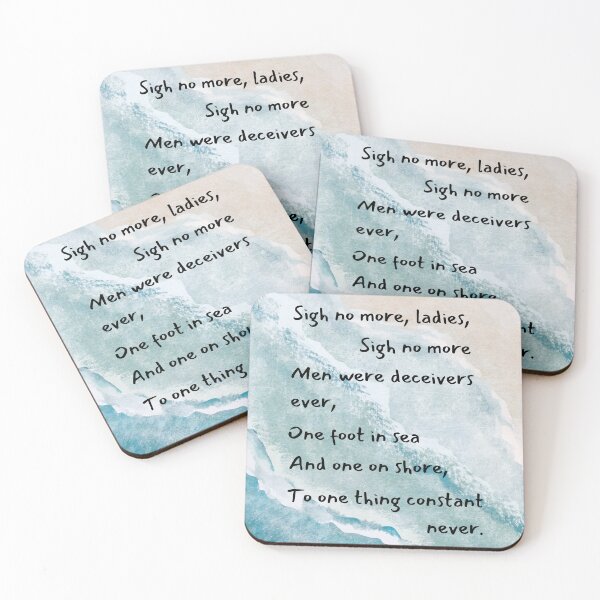 Sigh no more, ladies,
Sigh no more
Men were deceivers
ever,
Sigh no more, ladies,
Sigh no more
Men were deceivers
ever,
One foot in sea
And one on shore,
Sigh no more, ladies,
Sigh no more
Men were deceivers
ever,
One foot in sea
And one on
To one thing
Sigh no more, ladies,
Sigh no more
Men were deceivers
ever,
One foot in sea
And one on shore,
To one thing constant
never.